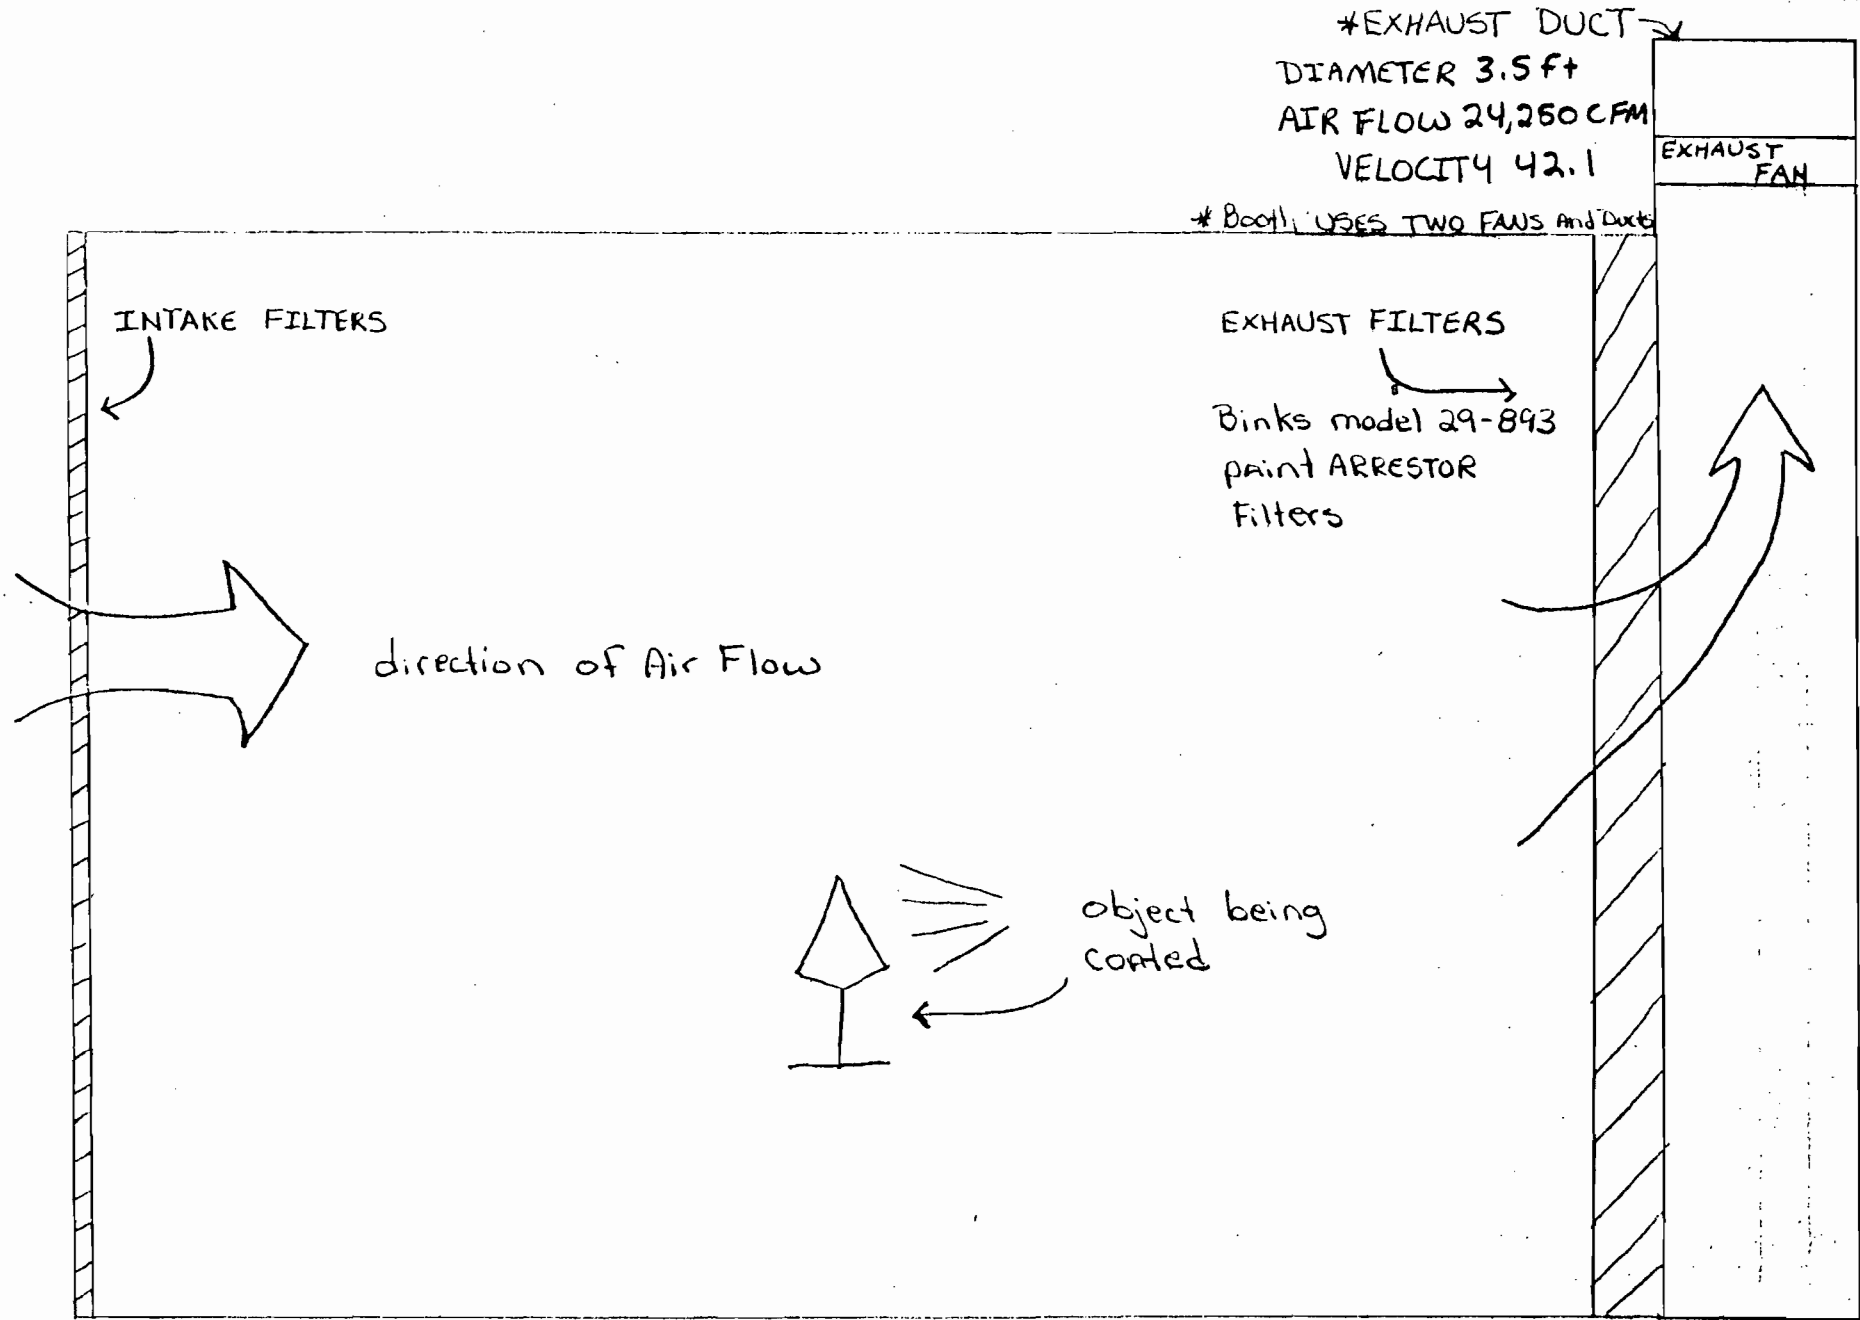 *EXHAUST DUCT
DIAMETER 3.5 ft
AIR FLOW 24,250 CFM
VELOCITY 42.1
EXHAUST
FAN
* Booth USES TWO FANS And Ducts
INTAKE FILTERS
EXHAUST FILTERS
Binks model 29-893
paint ARRESTOR
Filters
direction of Air Flow
object being
coated